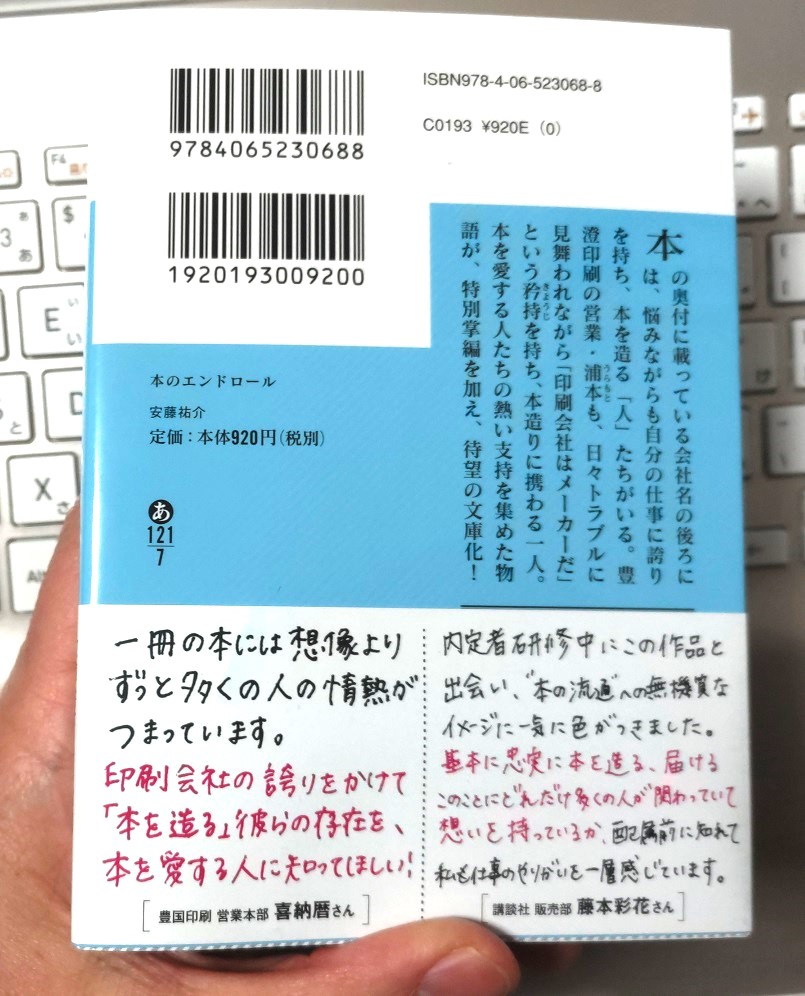 9784065230688
1920193009200
ISBN978-4-06-523068-8
C0193 ¥920E (0)
本の奥付に載っている会社名の後ろに
は、悩みながらも自分の仕事に誇り
を持ち、本を造る「人」たちがいる。豊
澄印刷の営業・浦本も、日々トラブルに
見舞われながら「印刷会社はメーカーだ」
という矜持を持ち、本造りに携わる一人。
本を愛する人たちの熱い支持を集めた物
語が、特別掌編を加え、待望の文庫化!
うらもと
きょうじ
本のエンドロール
安藤祐介
定価:本体920円(税別)
あ
121
7
一冊の本には想像より
ずっと多くの人の情熱が
つまっています。
印刷会社の誇りをかけて
「本を造る」彼らの存在を、
本を愛する人に知ってほしい!
豊国印刷 営業本部 喜納暦さん
内定者研修中にこの作品と
出会い、"本の流通"への無機質な
イメージに一気に色がつきました。
基本に忠実に本を造る、届ける
このことにどれだけ多くの人が関わっていて
想いを持っているか、配属前に知れて
私も仕事のやりがいを一層感じています。
講談社 販売部 藤本彩花さん
F4
3
あ
あ
$
E
い
い
X
さ
と
け
へ